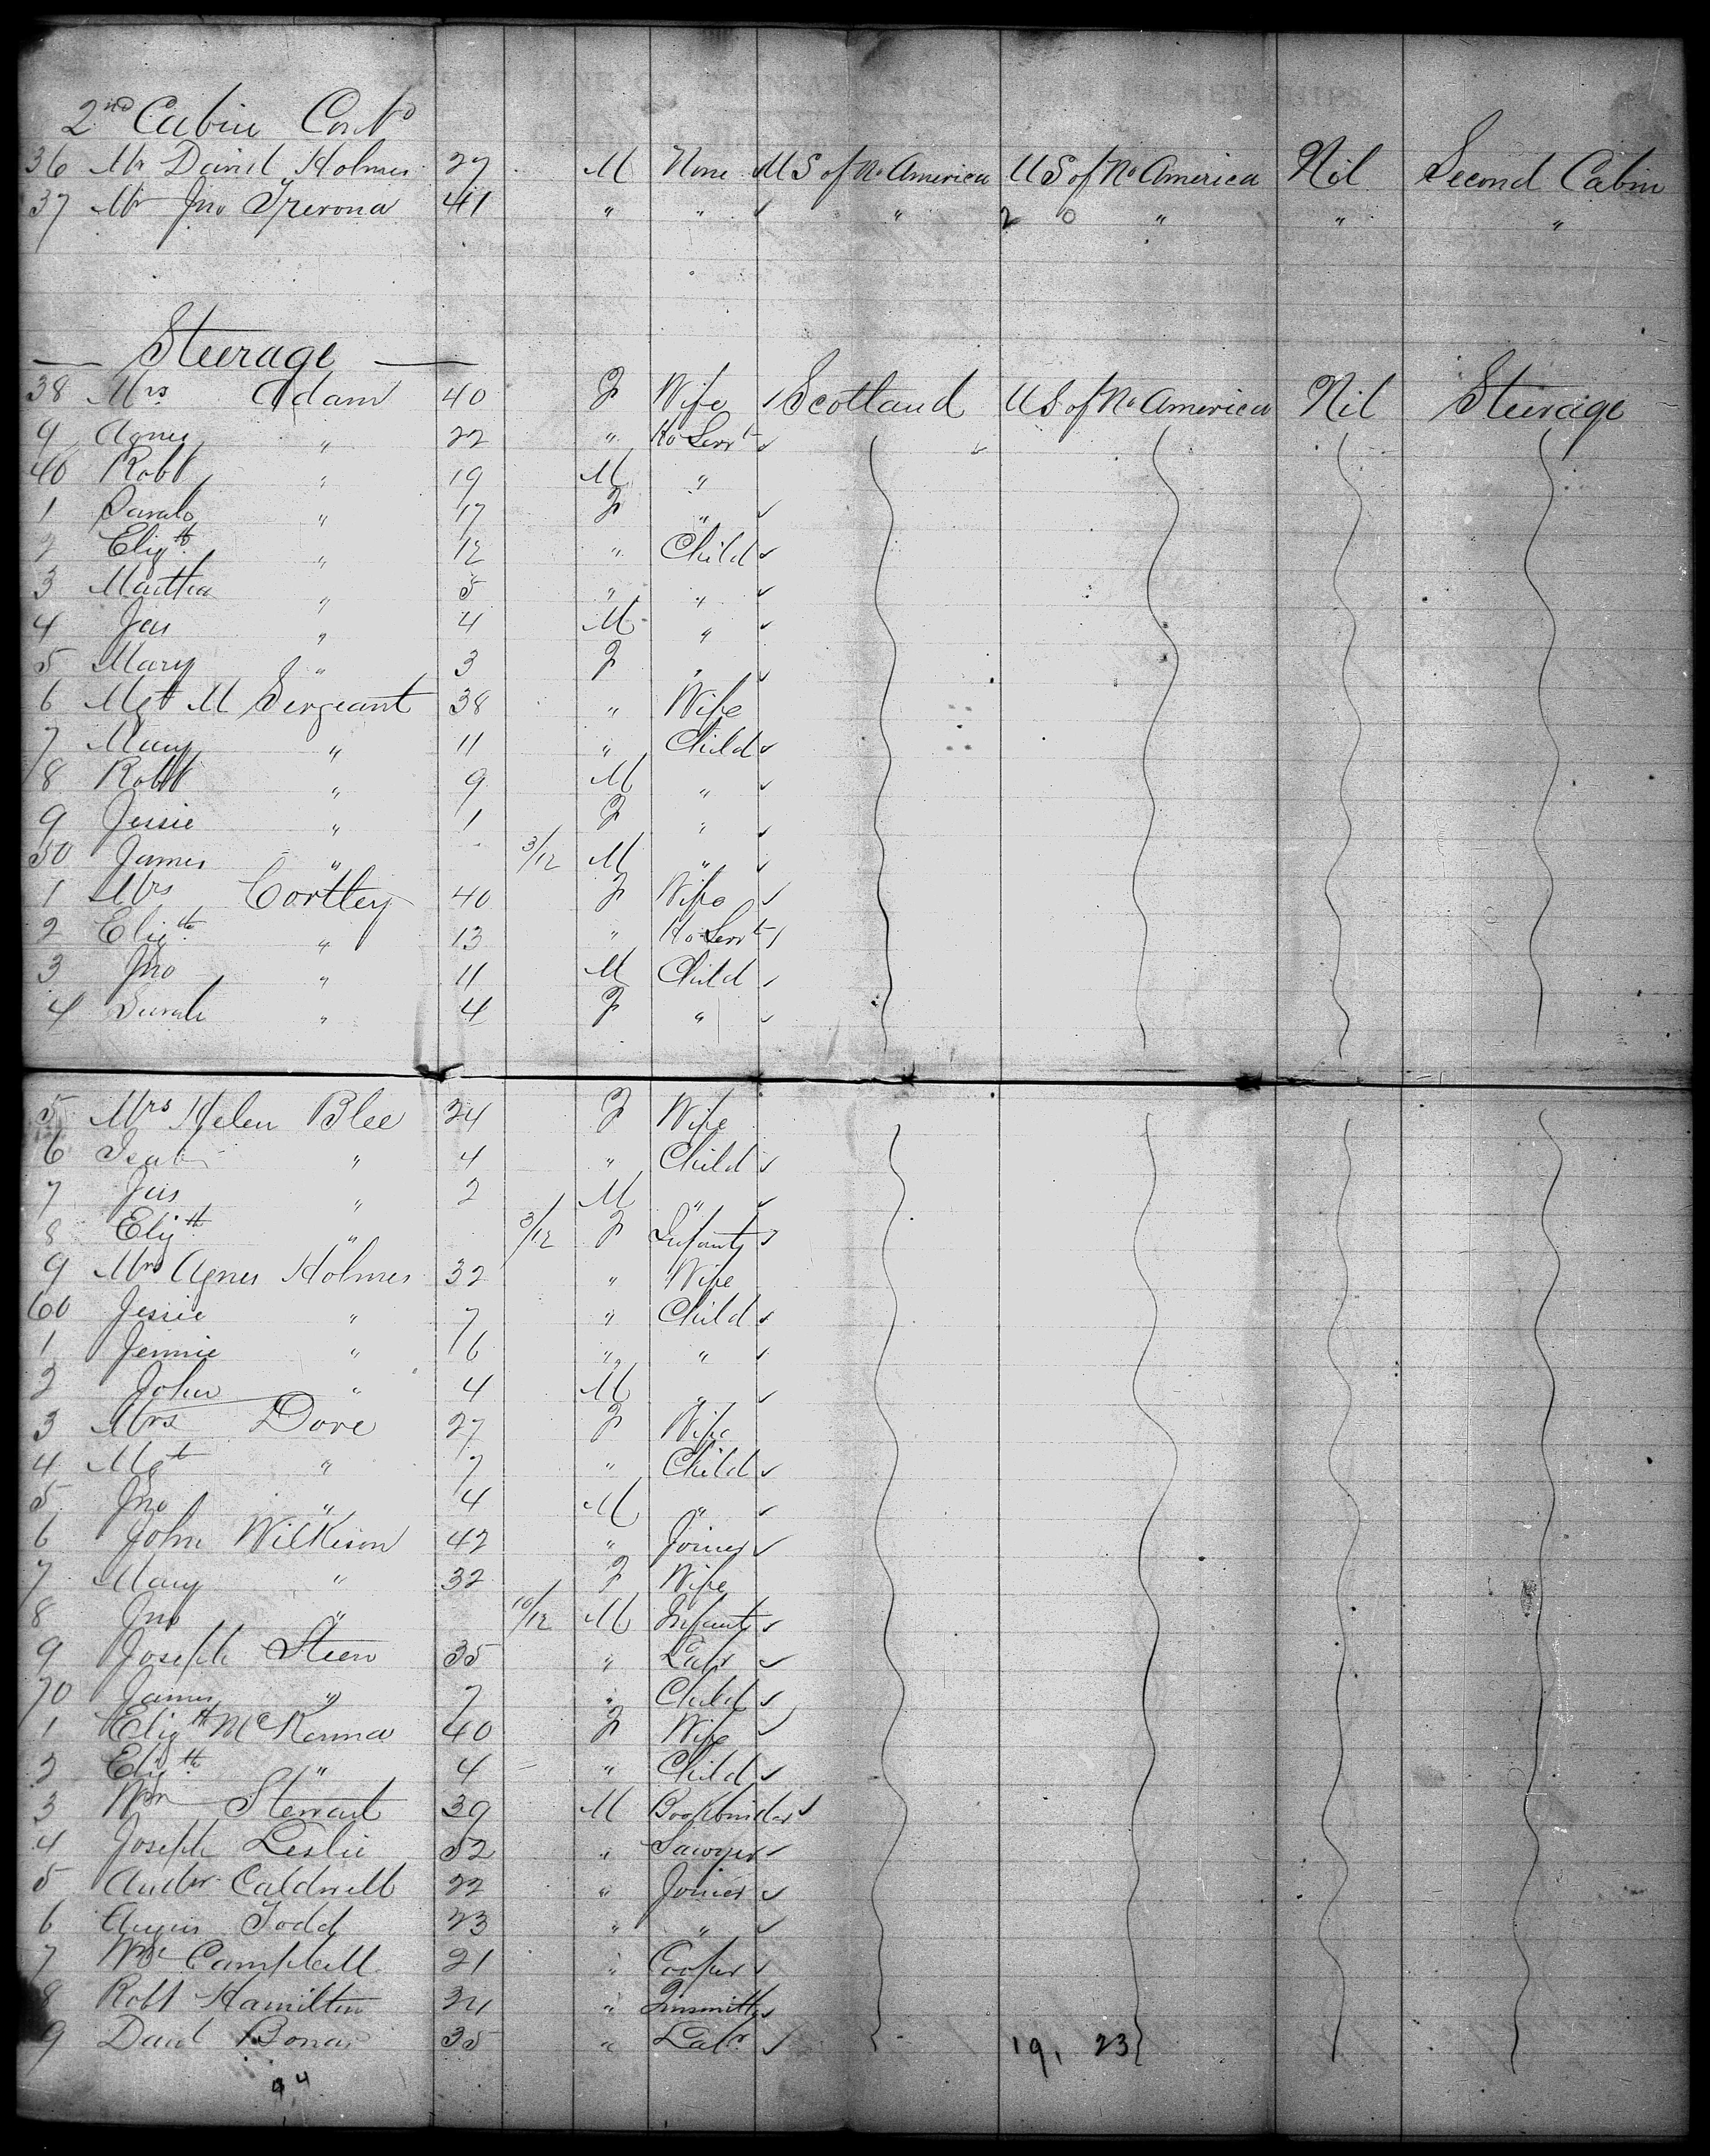 2nd Cabin Contd
36 Mr David Holmes 27 M None U S of No America U S of No America Nil Second Cabin
37 Mr Jno Trevona 41 " " " 2 0 " " "
Steerage
38 Mrs Adam 40 F Wife Scotland U S of No America Nil Steerage
9 Agnes " 22 " Ho Servt
40 Robt " 19 M "
1 Sarah " 17 F "
2 Elizth " 12 " Child
3 Martha " 5 " "
4 Jas " 4 M "
5 Mary " 3 F "
6 Mgt M Sergeant 38 " Wife
7 Mary " 11 " Child
8 Robt " 9 M "
9 Jessie " 1 F "
50 James " 3/12 M "
1 Mrs Cortley 40 F Wife
2 Elizth " 13 " Ho Servt
3 Jno " 11 M Child
4 Sarah " 4 F "
5 Mrs Helen Blee 24 F Wife
6 Isab " 4 " Child
7 Jas " 2 M "
8 Elizth " 3/12 F Infant
9 Mrs Agnes Holmes 32 " Wife
60 Jessie " 7 " Child
1 Jennie " 6 " "
2 John " 4 M "
3 Mrs Dove 27 F Wife
4 Mgt " 7 " Child
5 Jno " 4 M "
6 John Wilkison 42 " Joiner
7 Mary " 32 F Wife
8 Jno " 10/12 M Infant
9 Joseph Steen 35 " Labr
70 James " 7 " Child
1 Elizth McKenna 40 F Wife
2 Elizth " 4 " Child
3 Wm Stewart 39 M Bookbinder
4 Joseph Leslie 52 " Sawyer
5 Andw Caldwell 22 " Joiner
6 Angus Todd 23 " "
7 Wm Campbell 21 " Cooper
8 Robt Hamilton 24 " Tinsmith
9 David Bonar 35 " Labr 19, 23
94